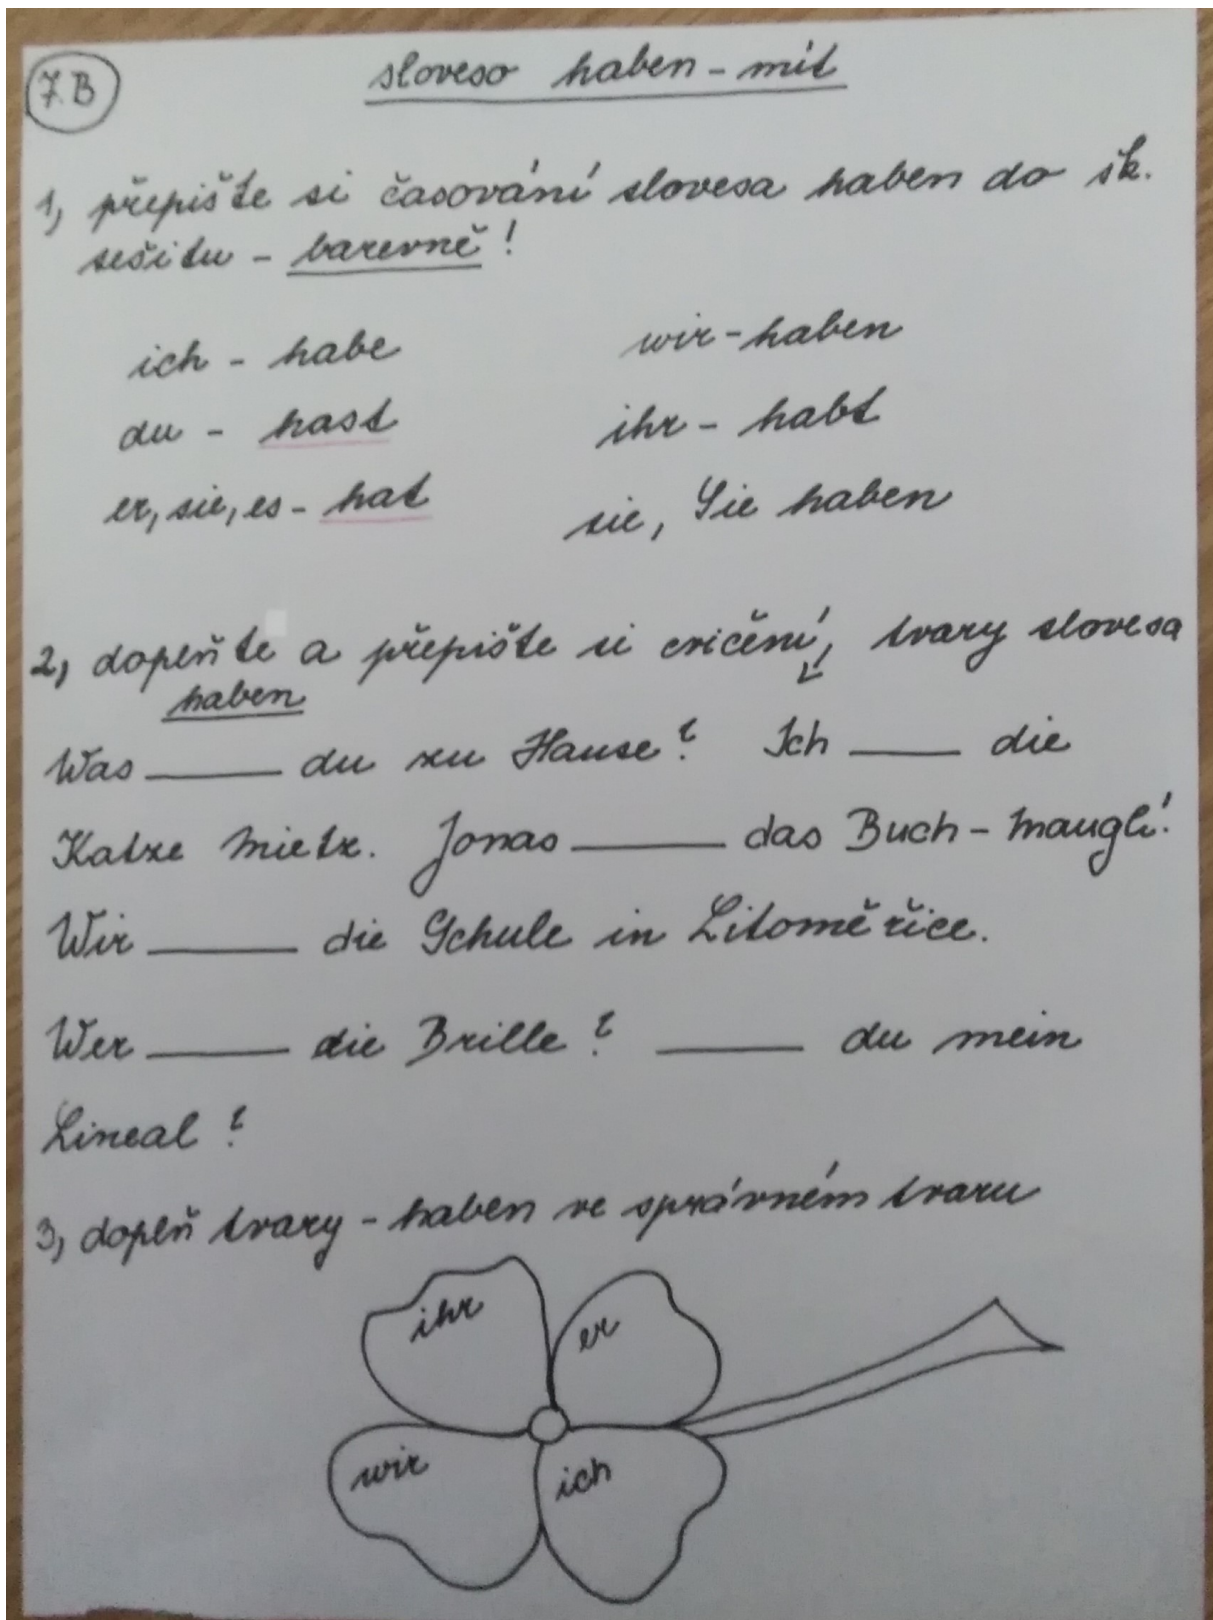 7.B
sloveso haben - mít
1, přepište si časování slovesa haben do šk.
sešitu - barevně!
ich - habe
wir - haben
du - hast
ihr - habt
er, sie, es - hat
sie, Sie haben
2, doplňte a přepište si cvičení, tvary slovesa
haben
Was ____ du zu Hause? Ich ____ die
Katze Mietz. Jonas ____ das Buch - Maugli!
Wir ____ die Schule in Litoměřice.
Wer ____ die Brille? ____ du mein
Lineal?
3, doplň tvary - haben ve správném tvaru
ihr
er
wir
ich